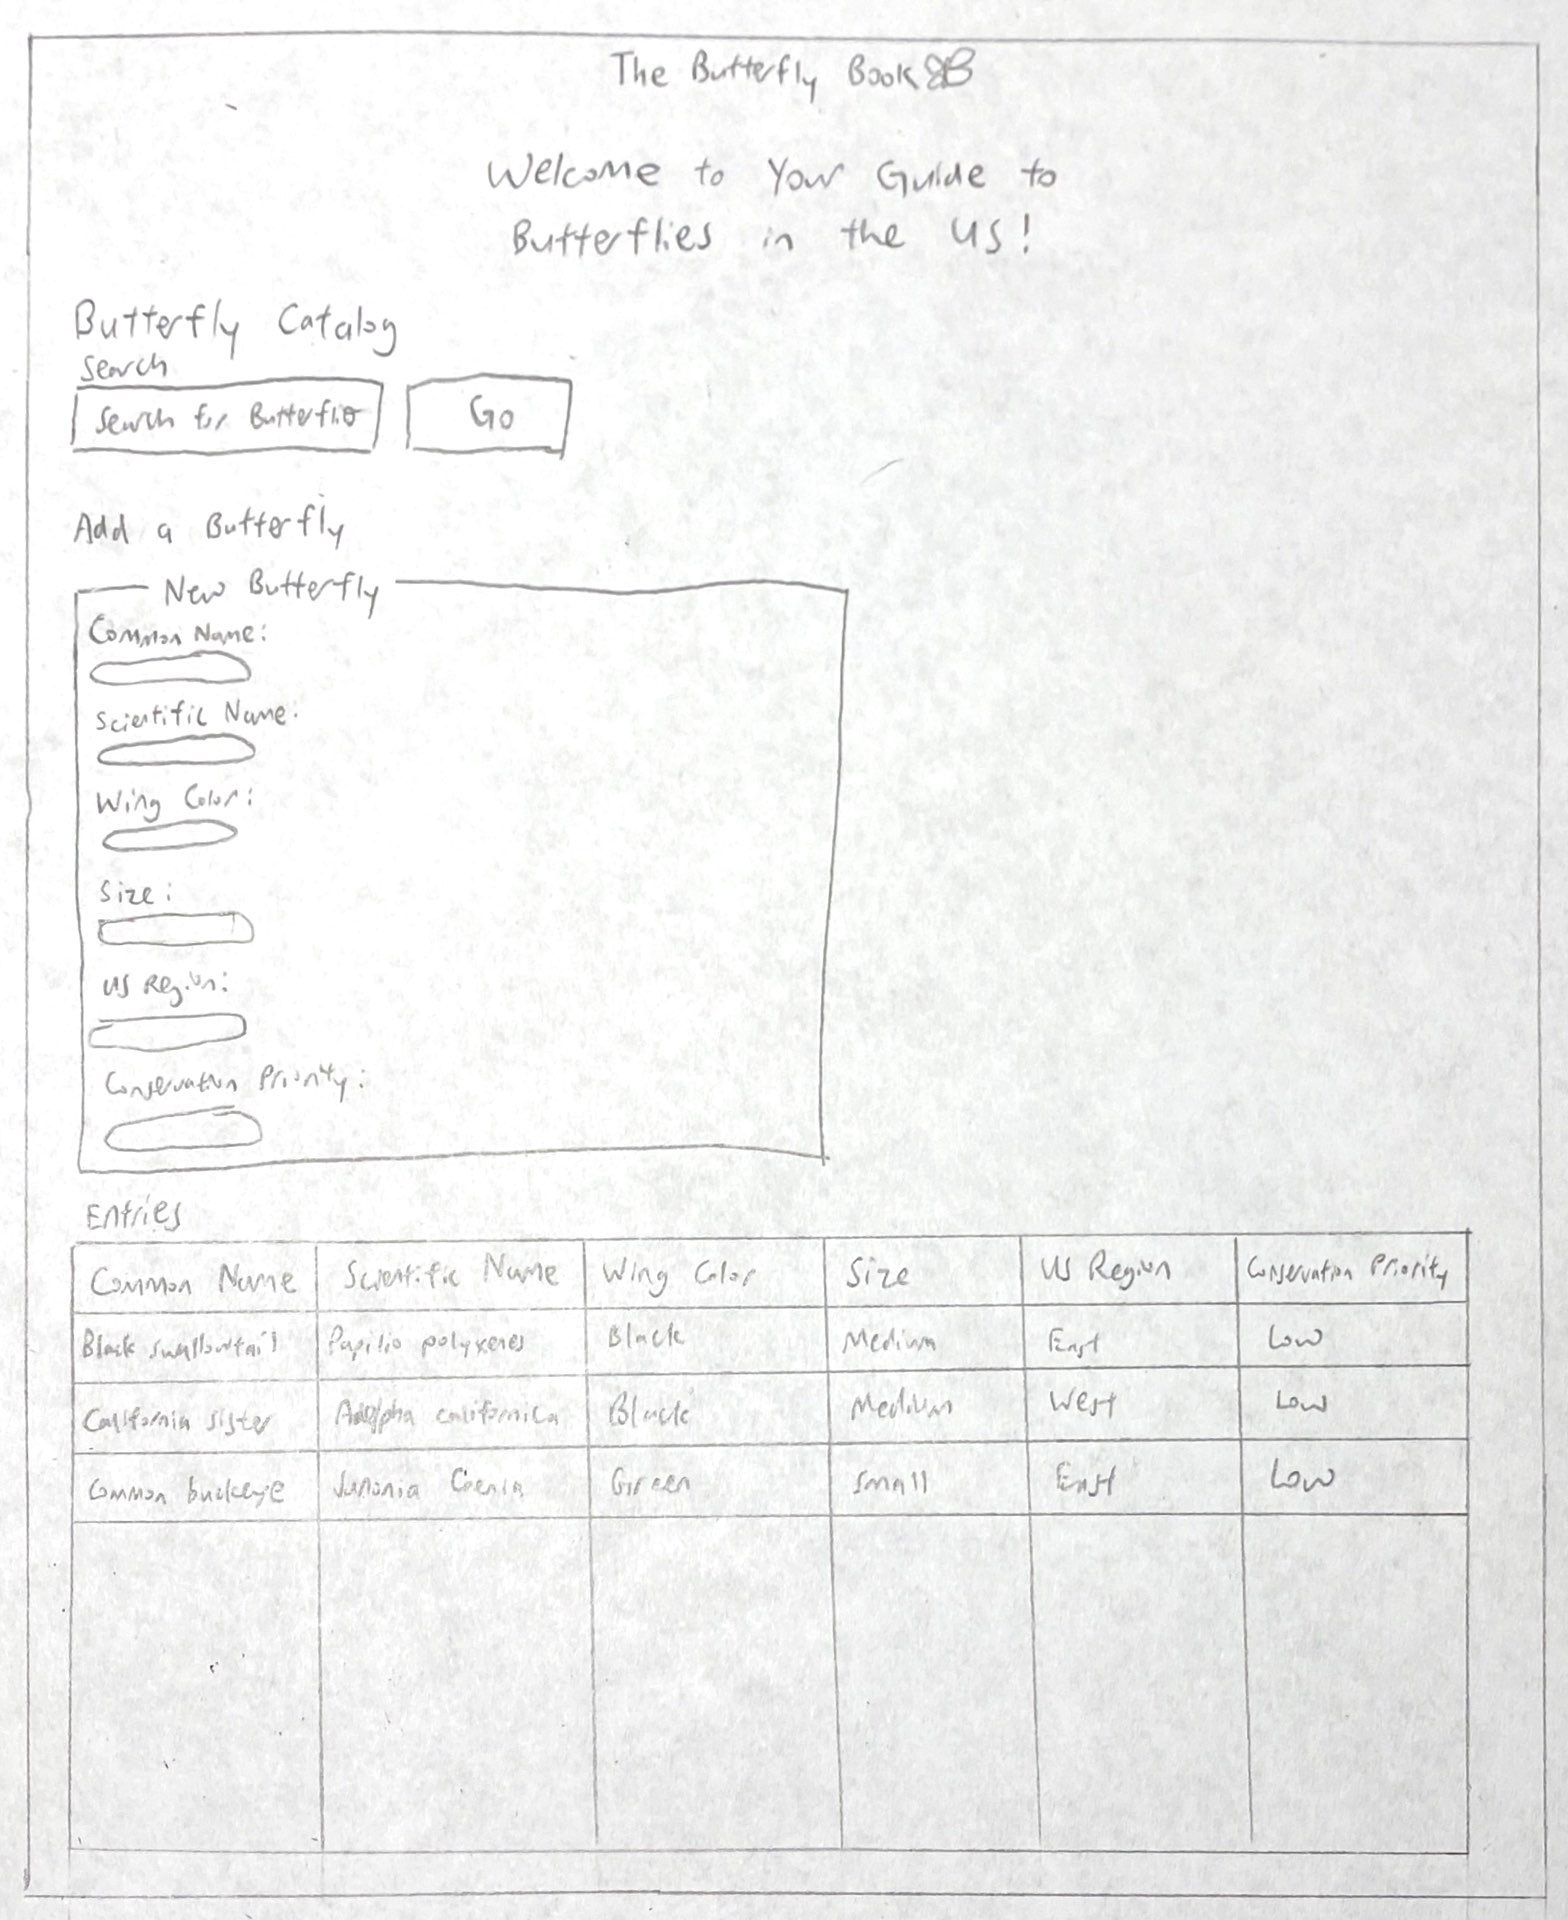 The Butterfly Book
Welcome to Your Guide to
Butterflies in the US!
Butterfly Catalog
Search
Search for Butterflie
Go
Add a Butterfly
New Butterfly
Common Name:
Scientific Name:
Wing Color:
Size:
US Region:
Conservation Priority:
Entries
Common Name Scientific Name Wing Color Size US Region Conservation Priority
Black swallowtail Papilio polyxenes Black Medium East Low
California sister Adelpha californica Black Medium West Low
Common buckeye Junonia Coenia Green Small East Low